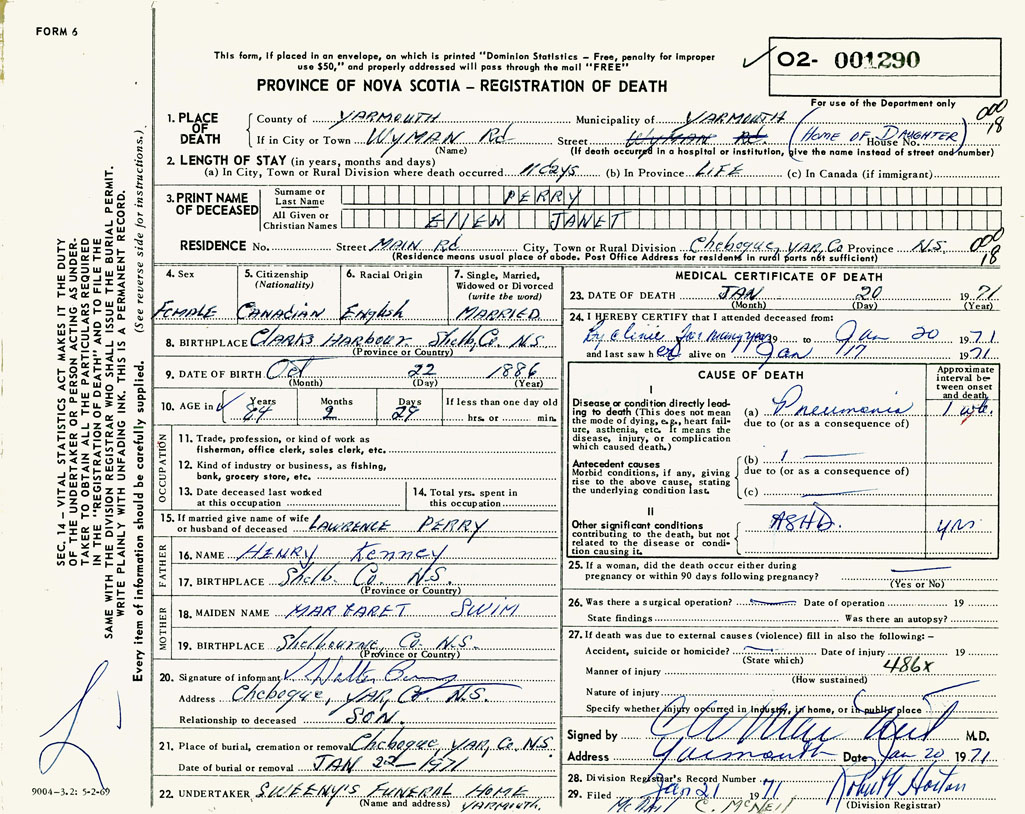 FORM 6
This form, if placed in an envelope, on which is printed "Dominion Statistics – Free, penalty for improper
use $50," and properly addressed will pass through the mail "FREE"
O2- 001290
PROVINCE OF NOVA SCOTIA – REGISTRATION OF DEATH
For use of the Department only
000
18
1. PLACE OF DEATH
County of YARMOUTH Municipality of YARMOUTH
If in City or Town WYMAN Rd Street WYMAN Rd House No. (HOME OF DAUGHTER)
(Name) (If death occurred in a hospital or institution, give the name instead of street and number)
2. LENGTH OF STAY (in years, months and days)
(a) In City, Town or Rural Division where death occurred 11 days (b) In Province LIFE (c) In Canada (if immigrant)
3. PRINT NAME OF DECEASED
Surname or Last Name PERRY
All Given or Christian Names ELLEN JANET
RESIDENCE No. Street MAIN Rd City, Town or Rural Division Cheboque, YAR, Co Province N.S. 000
18
(Residence means usual place of abode. Post Office Address for residents in rural parts not sufficient)
4. Sex
FEMALE
5. Citizenship
(Nationality)
CANADIAN
6. Racial Origin
English
7. Single, Married,
Widowed or Divorced
(write the word)
MARRIED
8. BIRTHPLACE CLARKS HARBOUR Shelb, Co. N.S.
(Province or Country)
9. DATE OF BIRTH Oct 22 1886
(Month) (Day) (Year)
10. AGE in Years Months Days If less than one day old
84 2 29 hrs. or min.
OCCUPATION
11. Trade, profession, or kind of work as
fisherman, office clerk, sales clerk, etc.
12. Kind of industry or business, as fishing,
bank, grocery store, etc.
13. Date deceased last worked
at this occupation
14. Total yrs. spent in
this occupation
15. If married give name of wife
or husband of deceased LAWRENCE PERRY
FATHER
16. NAME HENRY Kenney
17. BIRTHPLACE Shelb. Co. N.S.
(Province or Country)
MOTHER
18. MAIDEN NAME MARGARET SWIM
19. BIRTHPLACE Shelbourne, Co. N.S.
(Province or Country)
20. Signature of informant Walter
Address Cheboque, YAR, Co N.S.
Relationship to deceased SON.
21. Place of burial, cremation or removal Cheboque, YAR, Co. N.S
Date of burial or removal JAN 22-1971
22. UNDERTAKER SWEENY'S FUNERAL HOME
(Name and address) YARMOUTH.
MEDICAL CERTIFICATE OF DEATH
23. DATE OF DEATH JAN 20 1971
(Month) (Day) (Year)
24. I HEREBY CERTIFY that I attended deceased from:
for many years 19 to Jan 20 1971
and last saw her alive on Jan 17 1971
CAUSE OF DEATH
Approximate
interval be-
tween onset
and death
I
Disease or condition directly lead-
ing to death (This does not mean
the mode of dying, e.g., heart fail-
ure, asthenia, etc. It means the
disease, injury, or complication
which caused death.)
(a) Pneumonia 1 wk.
due to (or as a consequence of)
Antecedent causes
Morbid conditions, if any, giving
rise to the above cause, stating
the underlying condition last.
(b)
due to (or as a consequence of)
(c)
II
Other significant conditions
contributing to the death, but not
related to the disease or condi-
tion causing it.
ASHD. yrs
25. If a woman, did the death occur either during
pregnancy or within 90 days following pregnancy?
(Yes or No)
26. Was there a surgical operation? Date of operation 19
State findings Was there an autopsy?
27. If death was due to external causes (violence) fill in also the following: –
Accident, suicide or homicide? Date of injury 19
(State which)
Manner of injury 486X
(How sustained)
Nature of injury
Specify whether injury occurred in industry, in home, or in public place
Signed by M.D.
Address Yarmouth Date Jan 20 1971
28. Division Registrar's Record Number 7
29. Filed Jan 21 1971 Robert Horton
McNeil C. McNeil (Division Registrar)
SEC. 14 – VITAL STATISTICS ACT MAKES IT THE DUTY
OF THE UNDERTAKER OR PERSON ACTING AS UNDER-
TAKER TO OBTAIN ALL THE PARTICULARS REQUIRED
IN THE "REGISTRATION OF DEATH" AND TO FILE THE
SAME WITH THE DIVISION REGISTRAR WHO SHALL ISSUE THE BURIAL PERMIT.
WRITE PLAINLY WITH UNFADING INK. THIS IS A PERMANENT RECORD.
Every item of information should be carefully supplied. (See reverse side for instructions.)
9004-3.2: 5-2-69